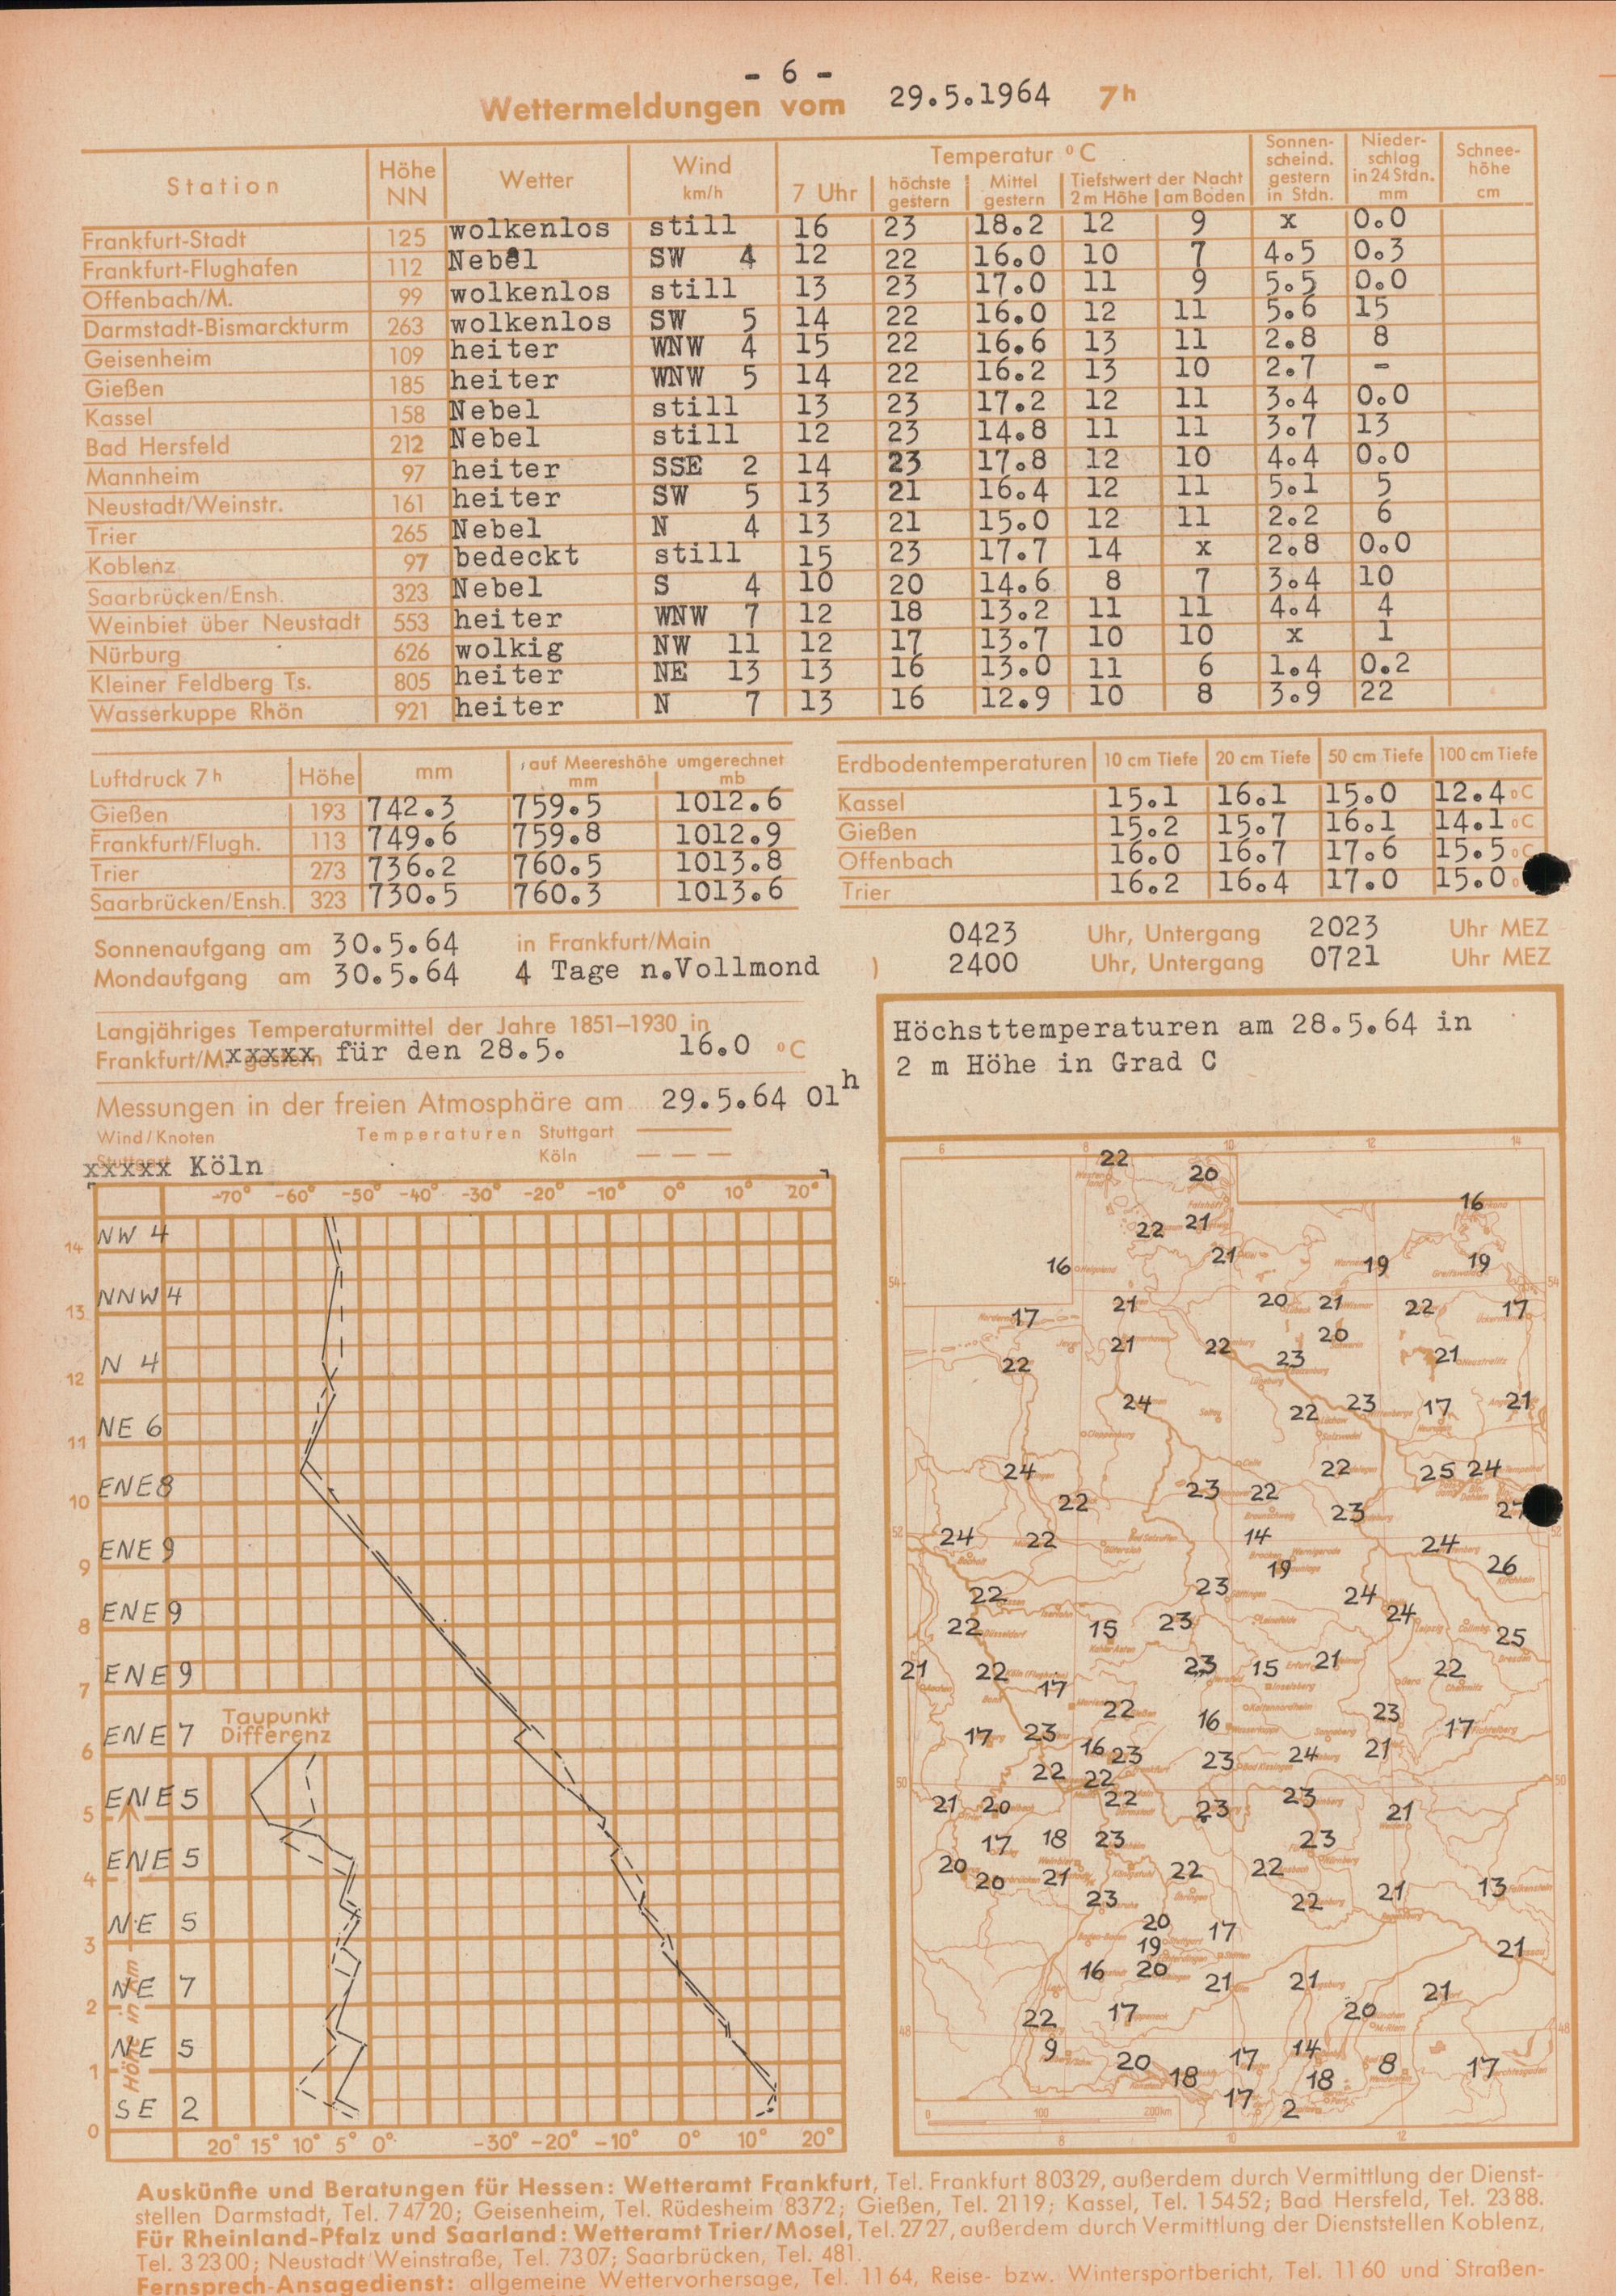 - 6 -
Wettermeldungen vom 29.5.1964 7h
Station Höhe NN Wetter Wind km/h Temperatur °C 7 Uhr höchste gestern Mittel gestern Tiefstwert der Nacht 2m Höhe am Boden Sonnenscheind. gestern in Stdn. Niederschlag in 24 Stdn. mm Schneehöhe cm
Frankfurt-Stadt 125 wolkenlos still 16 23 18.2 12 9 x 0.0
Frankfurt-Flughafen 112 Nebel SW 4 12 22 16.0 10 7 4.5 0.3
Offenbach/M. 99 wolkenlos still 13 23 17.0 11 9 5.5 0.0
Darmstadt-Bismarckturm 263 wolkenlos SW 5 14 22 16.0 12 11 5.6 15
Geisenheim 109 heiter WNW 4 15 22 16.6 13 11 2.8 8
Gießen 185 heiter WNW 5 14 22 16.2 13 10 2.7 -
Kassel 158 Nebel still 13 23 17.2 12 11 3.4 0.0
Bad Hersfeld 212 Nebel still 12 23 14.8 11 11 3.7 13
Mannheim 97 heiter SSE 2 14 23 17.8 12 10 4.4 0.0
Neustadt/Weinstr. 161 heiter SW 5 13 21 16.4 12 11 5.1 5
Trier 265 Nebel N 4 13 21 15.0 12 11 2.2 6
Koblenz 97 bedeckt still 15 23 17.7 14 x 2.8 0.0
Saarbrücken/Ensh. 323 Nebel S 4 10 20 14.6 8 7 3.4 10
Weinbiet über Neustadt 553 heiter WNW 7 12 18 13.2 11 11 4.4 4
Nürburg 626 wolkig NW 11 12 17 13.7 10 10 x 1
Kleiner Feldberg Ts. 805 heiter NE 13 13 16 13.0 11 6 1.4 0.2
Wasserkuppe Rhön 921 heiter N 7 13 16 12.9 10 8 3.9 22
Luftdruck 7h Höhe mm auf Meereshöhe umgerechnet mm mb
Gießen 193 742.3 759.5 1012.6
Frankfurt/Flugh. 113 749.6 759.8 1012.9
Trier 273 736.2 760.5 1013.8
Saarbrücken/Ensh. 323 730.5 760.3 1013.6
Erdbodentemperaturen 10 cm Tiefe 20 cm Tiefe 50 cm Tiefe 100 cm Tiefe
Kassel 15.1 16.1 15.0 12.4 °C
Gießen 15.2 15.7 16.1 14.1 °C
Offenbach 16.0 16.7 17.6 15.5 °C
Trier 16.2 16.4 17.0 15.0
Sonnenaufgang am 30.5.64 in Frankfurt/Main 0423 Uhr, Untergang 2023 Uhr MEZ
Mondaufgang am 30.5.64 4 Tage n.Vollmond ) 2400 Uhr, Untergang 0721 Uhr MEZ
Langjähriges Temperaturmittel der Jahre 1851–1930 in
Frankfurt/M. xxxxx gestern für den 28.5. 16.0 °C
Messungen in der freien Atmosphäre am 29.5.64 01h
Wind/Knoten Temperaturen Stuttgart
Stuttgart xxxxx Köln Köln
-70° -60° -50° -40° -30° -20° -10° 0° 10° 20°
NW 4
14
NNW 4
13
N 4
12
NE 6
11
ENE 8
10
ENE 9
9
ENE 9
8
ENE 9
7
Taupunkt
Differenz
ENE 7
6
ENE 5
5
ENE 5
4
NE 5
3
NE 7
2
NE 5
1
SE 2
0
Höhe in km
20° 15° 10° 5° 0° -30° -20° -10° 0° 10° 20°
Höchsttemperaturen am 28.5.64 in
2 m Höhe in Grad C
6 8 10 12 14
22 20
16
22 21
16 21 19 19
54 54
17 21 20 21 22 17
21 22 20
22 23 21
24 22 23 17 21
24 22 25 24
22 23 22 23 27
52 52
24 22 14 24
19 26
22 23 24
22 15 23 24 25
21 22 23 15 21 22
17
22 16 23
17 23 21 17
16 23 23 24
50 22 22 50
21 20 22 23 23 21
17 18 23 23
20 20 21 22 22
23 22 21 13
20 17
19 21
16 20 21 21 21
22 17 20
48 48
9 20 17 14 8 17
18 18
17 2
0 100 200km
8 10 12
Auskünfte und Beratungen für Hessen: Wetteramt Frankfurt, Tel. Frankfurt 80329, außerdem durch Vermittlung der Dienst-
stellen Darmstadt, Tel. 74720; Geisenheim, Tel. Rüdesheim 8372; Gießen, Tel. 2119; Kassel, Tel. 15452; Bad Hersfeld, Tel. 2388.
Für Rheinland-Pfalz und Saarland: Wetteramt Trier/Mosel, Tel. 2727, außerdem durch Vermittlung der Dienststellen Koblenz,
Tel. 32300; Neustadt Weinstraße, Tel. 7307; Saarbrücken, Tel. 481.
Fernsprech-Ansagedienst: allgemeine Wettervorhersage, Tel. 1164, Reise- bzw. Wintersportbericht, Tel. 1160 und Straßen-